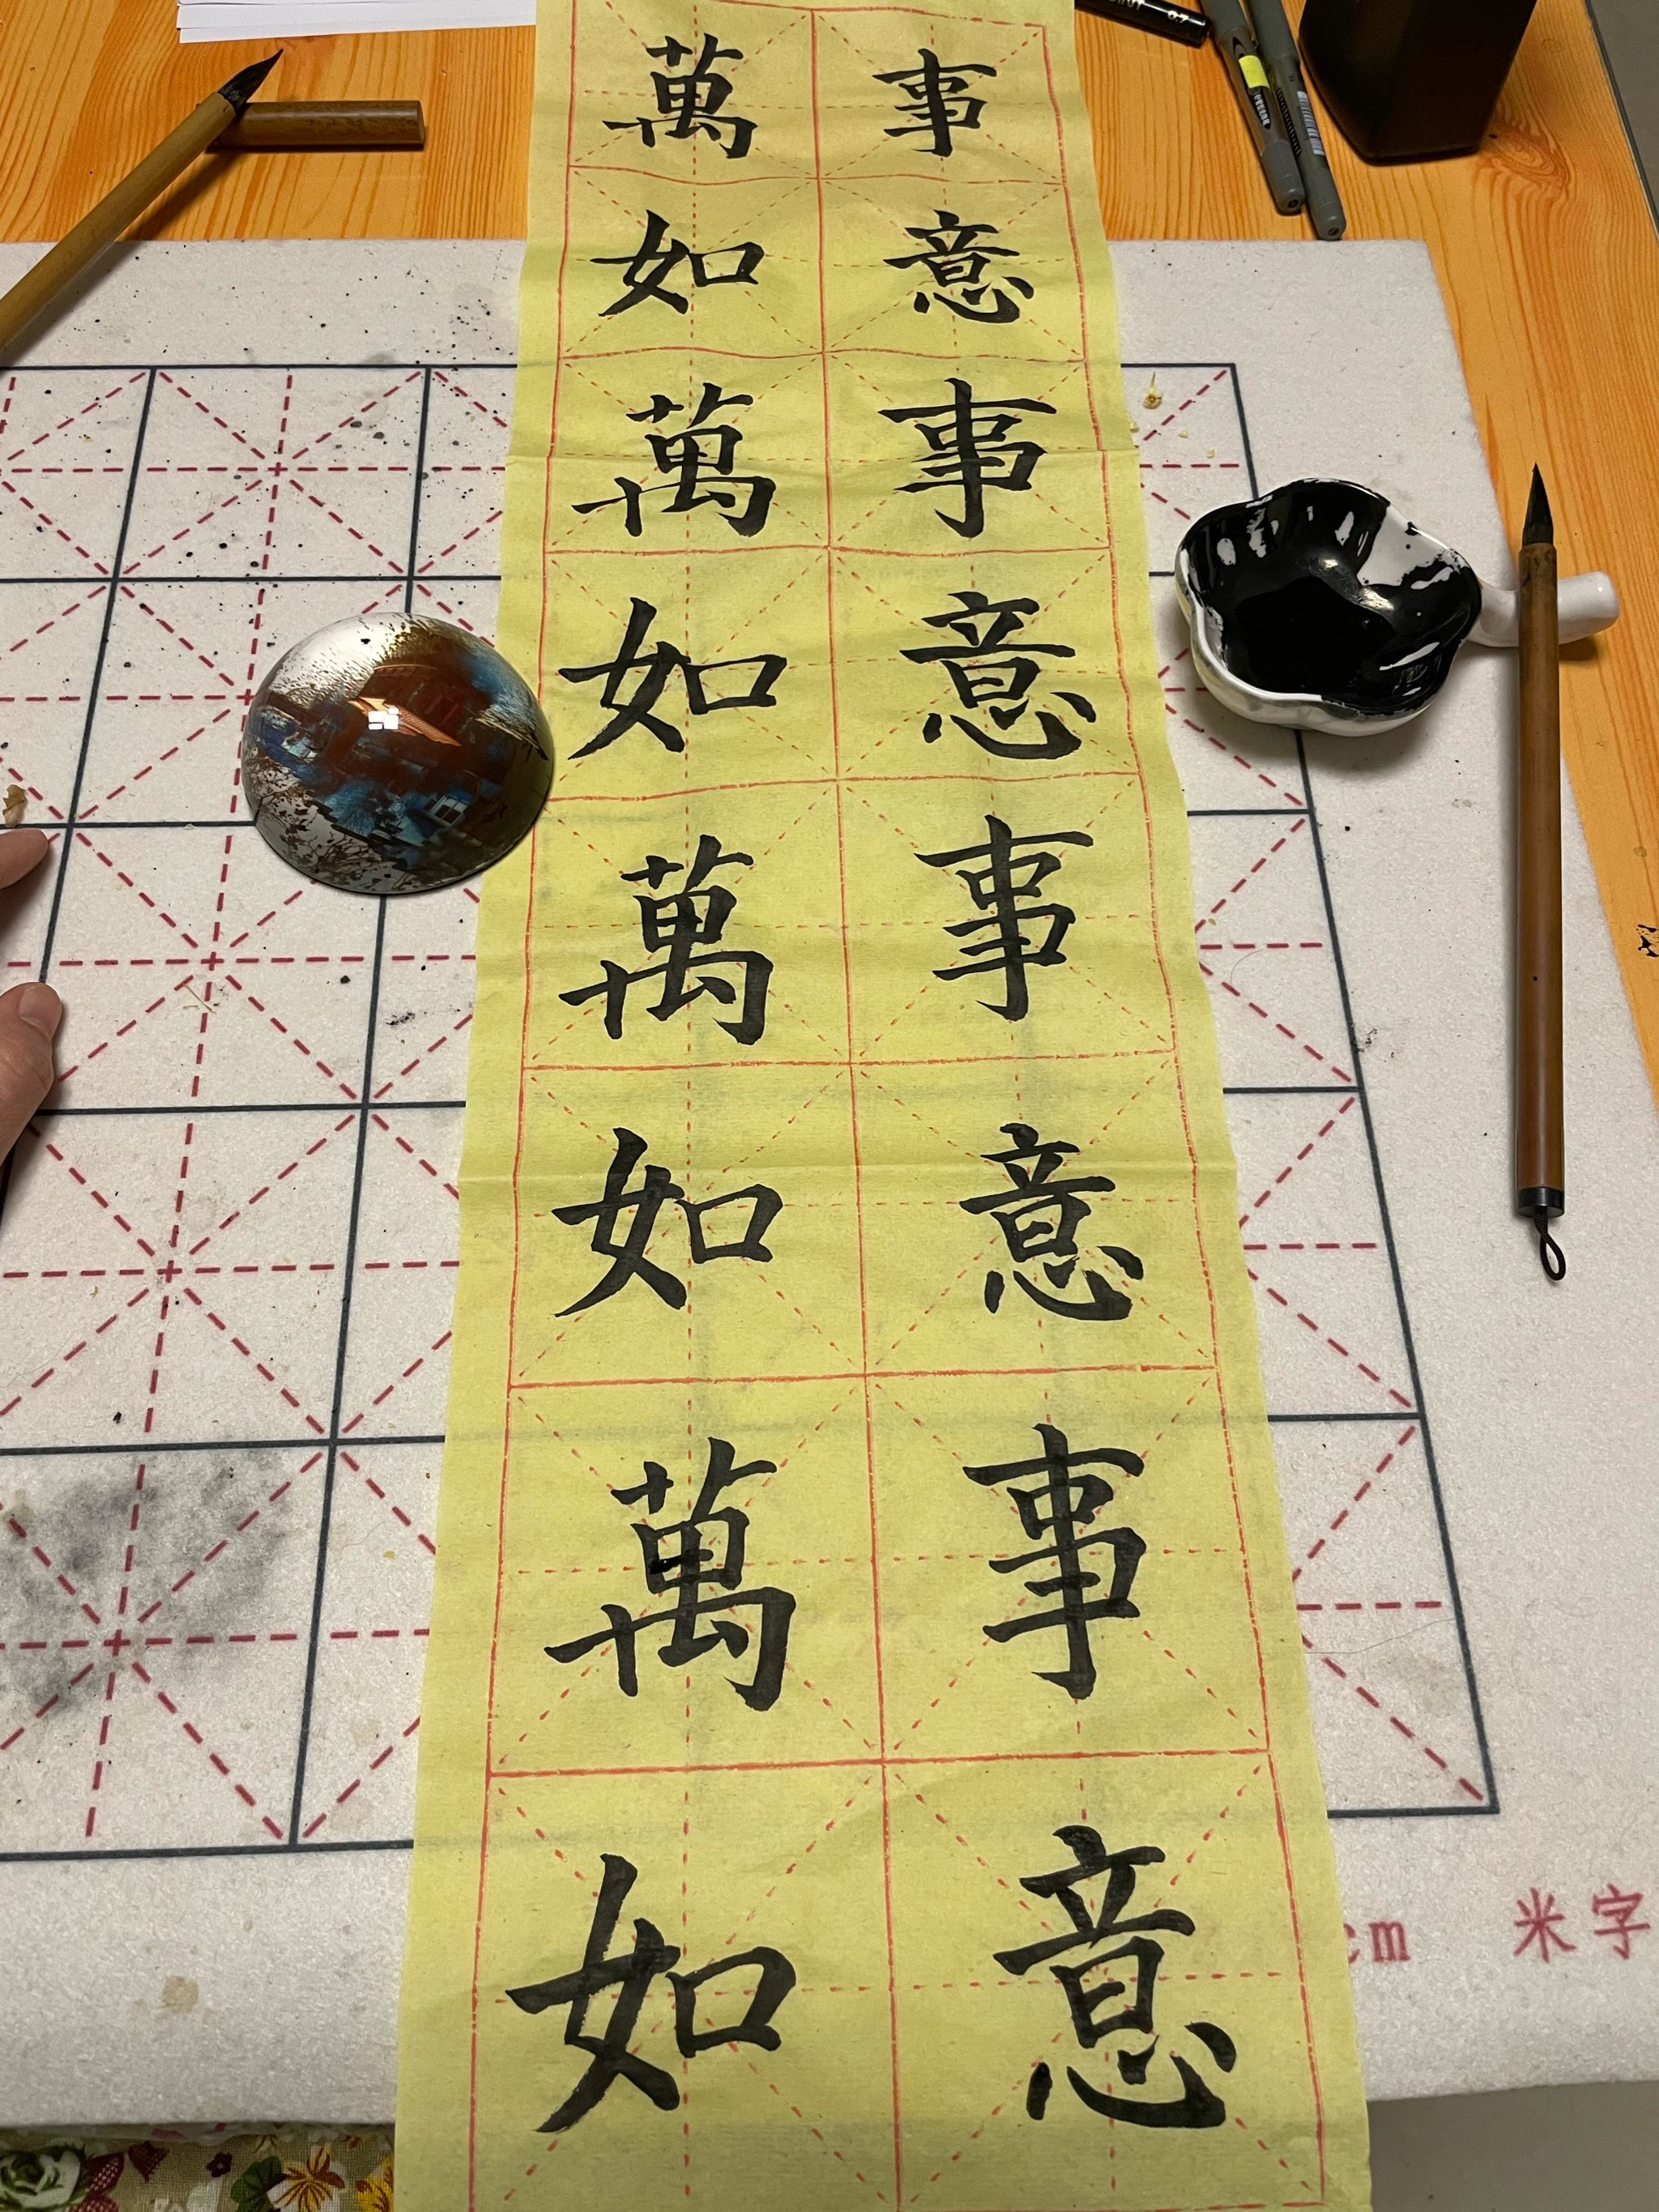 萬事
如意
萬事
如意
萬事
如意
萬事
如意
cm 米字